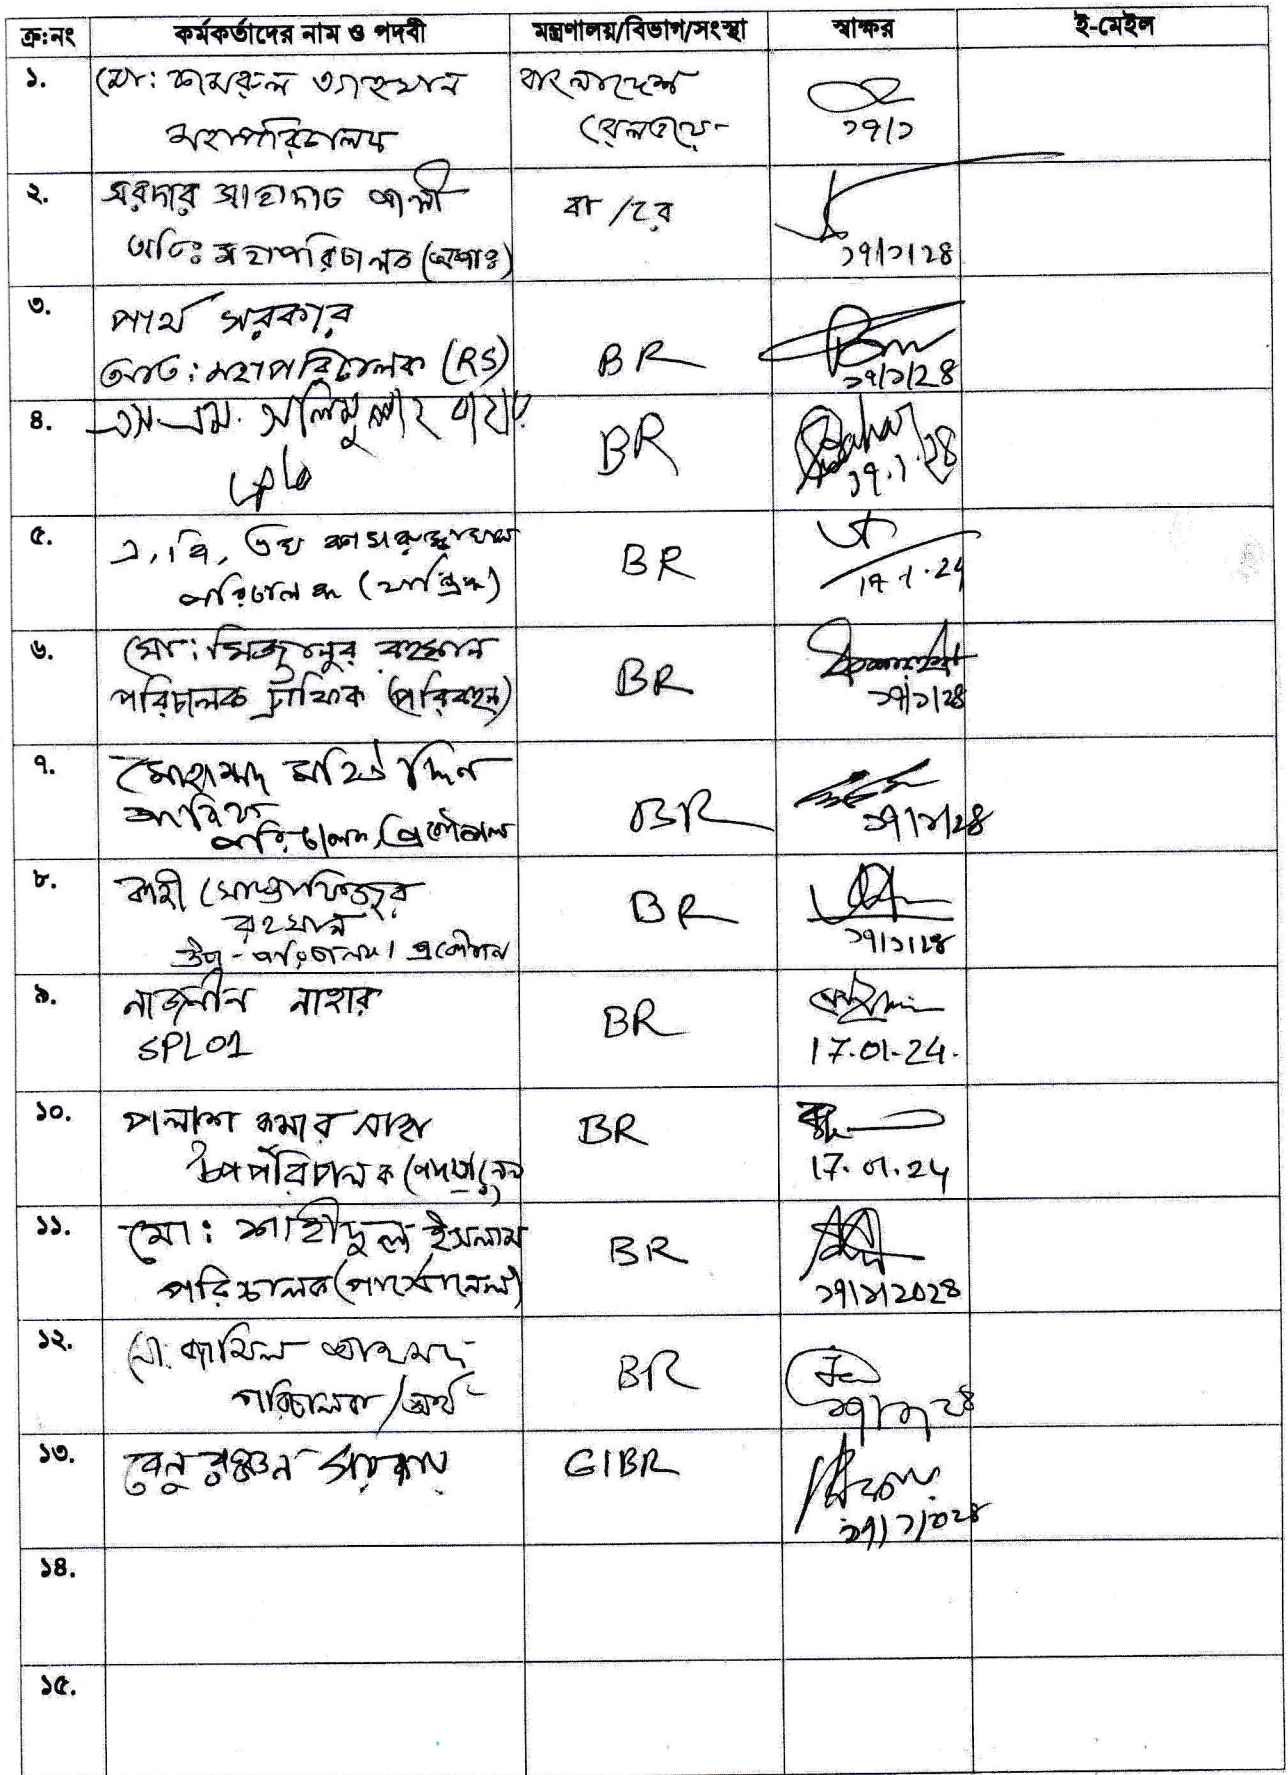 ক্র:নং কর্মকর্তাদের নাম ও পদবী মন্ত্রণালয়/বিভাগ/সংস্থা স্বাক্ষর ই-মেইল
১. মো: কামরুল আহসান বাংলাদেশ
মহাপরিচালক রেলওয়ে
১৭/১
২. সরদার সাহাদাত আলী বা/রে
অতিঃ মহাপরিচালক (অপাঃ) ১৭/১/২৪
৩. পার্থ সরকার
অতি: মহাপরিচালক (RS) BR ১৭/১/২৪
৪. এস.এম. সলিমুল্লাহ বাহার BR
১৭.১.২৪
৫. এ, বি, এম কামরুজ্জামান BR
পরিচালক (যান্ত্রিক) 17.1.24
৬. মো: মিজানুর রহমান BR
পরিচালক ট্রাফিক (পরিবহন) ১৭/১/২৪
৭. মোহাম্মদ মহিউদ্দিন BR
আরিফ ১৭/১/২৪
পরিচালক/প্রকৌশল
৮. কাজী মোস্তাফিজুর BR
রহমান
উপ-পরিচালক/প্রকৌশল ১৭/১/২৪
৯. নাজনীন নাহার BR
SPLO1 17.01.24.
১০. পলাশ কুমার সাহা BR
উপপরিচালক 17.01.24
১১. মো: শাহীদুল ইসলাম BR
পরিচালক (পার্সোনেল) ১৭/১/২০২৪
১২. মো: জামিল আহমেদ BR
পরিচালক/অর্থ ১৭/১/২৪
১৩. বেনু রঞ্জন সরকার GIBR
১৭/১/২০২৪
১৪.
১৫.